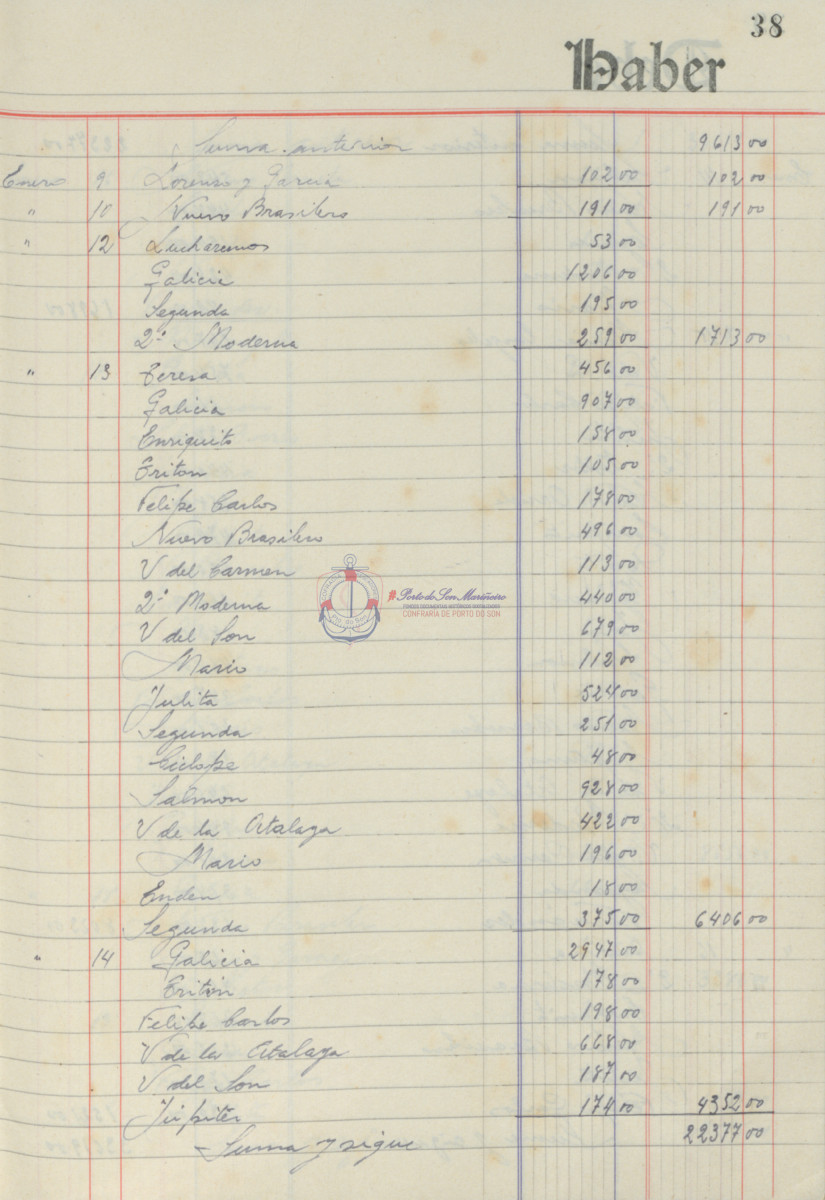 38
Haber
Suma anterior 9613 00
Enero 9 Lorenzo y Garcia 102 00 102 00
" 10 Nuevo Brasilero 191 00 191 00
" 12 Lucharemos 53 00
Galicia 1206 00
Segunda 195 00
2ª Moderna 259 00 1713 00
" 13 Teresa 456 00
Galicia 907 00
Enriquito 158 00
Triton 105 00
Felipe Carlos 178 00
Nuevo Brasilero 496 00
V del Carmen 113 00
2ª Moderna 440 00
V del Son 679 00
Mario 112 00
Julita 524 00
Segunda 251 00
Ciclope 48 00
Salmon 928 00
V de la Atalaya 422 00
Mario 196 00
Enden 18 00
Segunda 375 00 6406 00
" 14 Galicia 2947 00
Tritón 178 00
Felipe Carlos 198 00
V de la Atalaya 668 00
V del Son 187 00
Júpiter 174 00 4352 00
Suma y sigue 22377 00
Porto do Son Mariñeiro
CONFRARIA DE PORTO DO SON